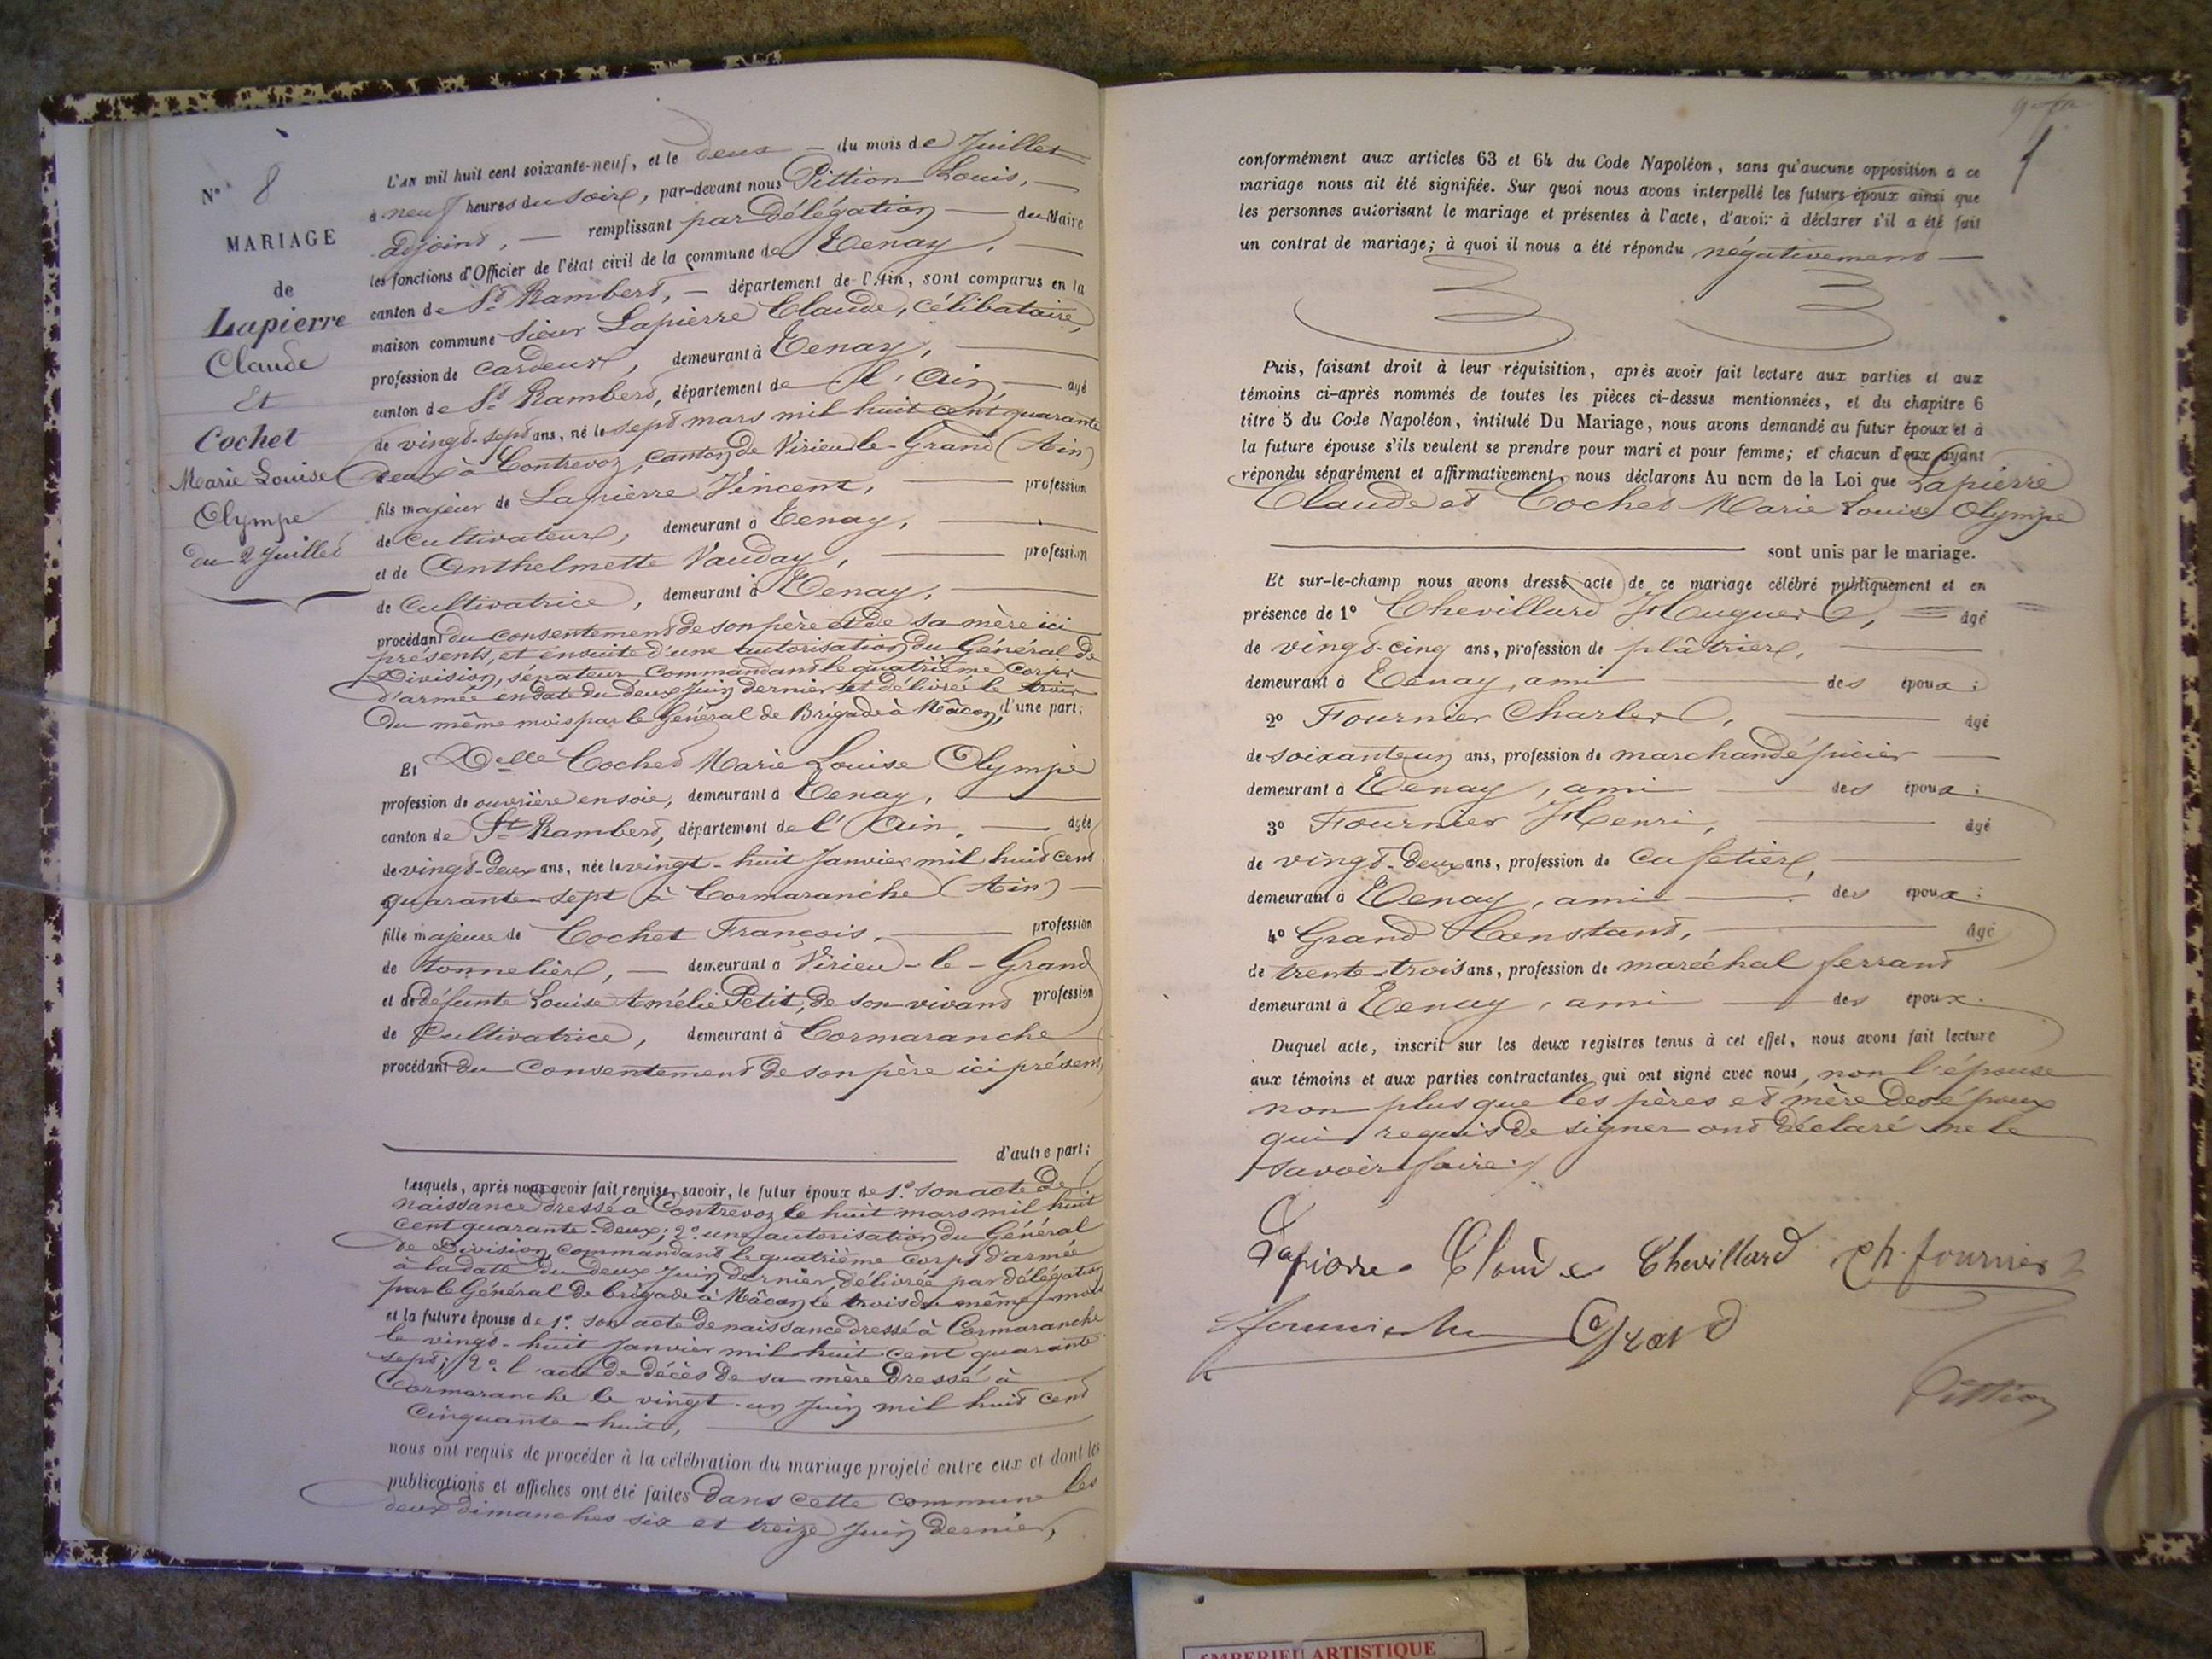 N° 8
MARIAGE
de
Lapierre
Claude
Et
Cochet
Marie Louise
Olympe
du 2 Juillet
L'AN mil huit cent soixante-neuf, et le deux du mois de Juillet
à neuf heures du soir, par-devant nous Pittion Louis,
adjoint, remplissant par Délégation du Maire
les fonctions d'Officier de l'état civil de la commune de Tenay,
canton de St Rambert, département de l'Ain, sont comparus en la
maison commune Sieur Lapierre Claude, célibataire,
profession de cardeur, demeurant à Tenay,
canton de St Rambert, département de l'Ain âgé
de vingt-sept ans, né le sept mars mil huit cent quarante
deux à Contrevoz, canton de Virieu-le-Grand (Ain)
fils majeur de Lapierre Vincent, profession
de cultivateur, demeurant à Tenay,
et de Anthelmette Vauday, profession
de Cultivatrice, demeurant à Tenay,
procédant du consentement de son père et de sa mère ici
présents, et ensuite d'une autorisation du Général de
Division, sénateur commandant le quatrième Corps
d'armée en date du deux Juin dernier et délivrée le trois
du même mois par le Général de Brigade à Mâcon, d'une part;
Et Delle Cochet Marie Louise Olympe
profession de ouvrière en soie, demeurant à Tenay,
canton de St Rambert, département de l'Ain, âgée
de vingt-deux ans, née le vingt-huit Janvier mil huit cent
quarante-sept à Cormaranche (Ain)
fille majeure de Cochet François, profession
de tonnelier, demeurant à Virieu-le-Grand
et de défunte Louise Amélie Petit, de son vivant profession
de Cultivatrice, demeurant à Cormaranche
procédant du consentement de son père ici présent,
d'autre part;
Lesquels, après nous avoir fait remise, savoir, le futur époux de 1° son acte de
naissance dressé à Contrevoz le huit mars mil huit
cent quarante-deux; 2° une autorisation du Général
de Division, commandant le quatrième corps d'armée
à la date du deux Juin dernier, délivrée par délégation
par le Général de brigade à Mâcon, le trois du même mois
et la future épouse de 1° son acte de naissance dressé à Cormaranche
le vingt-huit Janvier mil huit cent quarante
sept; 2° l'acte de décès de sa mère Dressé à
Cormaranche le vingt-un Juin mil huit cent
cinquante-huit,
nous ont requis de procéder à la célébration du mariage projeté entre eux et dont les
publications et affiches ont été faites dans cette commune les
deux dimanches six et treize Juin dernier,
conformément aux articles 63 et 64 du Code Napoléon, sans qu'aucune opposition à ce
mariage nous ait été signifiée. Sur quoi nous avons interpellé les futurs époux ainsi que
les personnes autorisant le mariage et présentes à l'acte, d'avoir à déclarer s'il a été fait
un contrat de mariage; à quoi il nous a été répondu négativement
Puis, faisant droit à leur réquisition, après avoir fait lecture aux parties et aux
témoins ci-après nommés de toutes les pièces ci-dessus mentionnées, et du chapitre 6
titre 5 du Code Napoléon, intitulé Du Mariage, nous avons demandé au futur époux et à
la future épouse s'ils veulent se prendre pour mari et pour femme; et chacun d'eux ayant
répondu séparément et affirmativement, nous déclarons Au nom de la Loi que Lapierre
Claude et Cochet Marie Louise Olympe
sont unis par le mariage.
Et sur-le-champ nous avons dressé acte de ce mariage célébré publiquement et en
présence de 1° Chevillard Hugues, âgé
de vingt-cinq ans, profession de plâtrier,
demeurant à Tenay, ami des époux;
2° Fournier Charles, âgé
de soixante un ans, profession de marchand épicier
demeurant à Tenay, ami des époux;
3° Fournier Henri, âgé
de vingt-deux ans, profession de cafetier,
demeurant à Tenay, ami des époux;
4° Grand Constant, âgé
de trente-trois ans, profession de maréchal ferrant
demeurant à Tenay, ami des époux.
Duquel acte, inscrit sur les deux registres tenus à cet effet, nous avons fait lecture
aux témoins et aux parties contractantes qui ont signé avec nous, non l'épouse
non plus que les pères et mère des époux
qui requis de signer ont déclaré ne le
savoir faire.
Lapierre Claude Chevillard Ch. fournier
Grand
Pittion
ARTISTIQUE